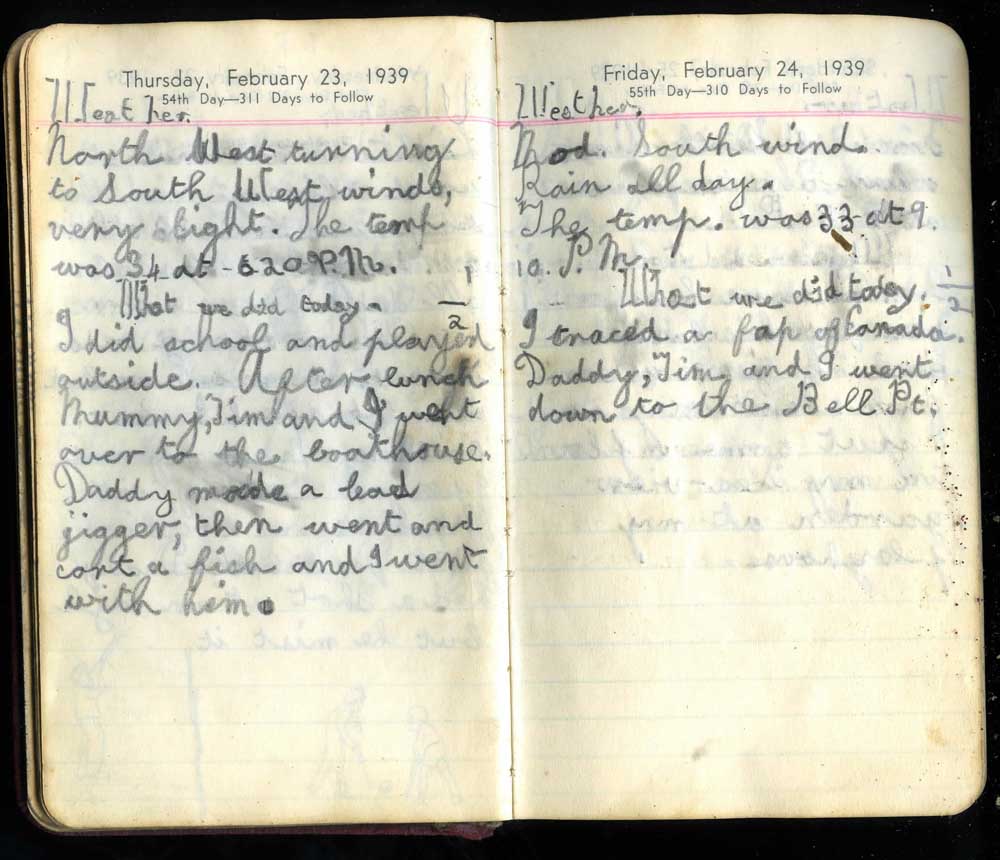 Thursday, February 23, 1939
54th Day—311 Days to Follow
Weather.
North West turning
to South West winds,
very light. The temp
was 34 at - 6 20 P.M.
What we did today. 1/2
I did school and played
outside. After lunch
Mummy, Tim and I went
over to the boathouse.
Daddy made a lead
jigger, then went and
cort a fish and I went
with him.
Friday, February 24, 1939
55th Day—310 Days to Follow
Weather.
Mod. South wind.
Rain all day.
The temp. was 33 at 9.
10. P.M.
What we did today. 1/2
I traced a fap of Canada.
Daddy, Tim and I went
down to the Bell Pt.